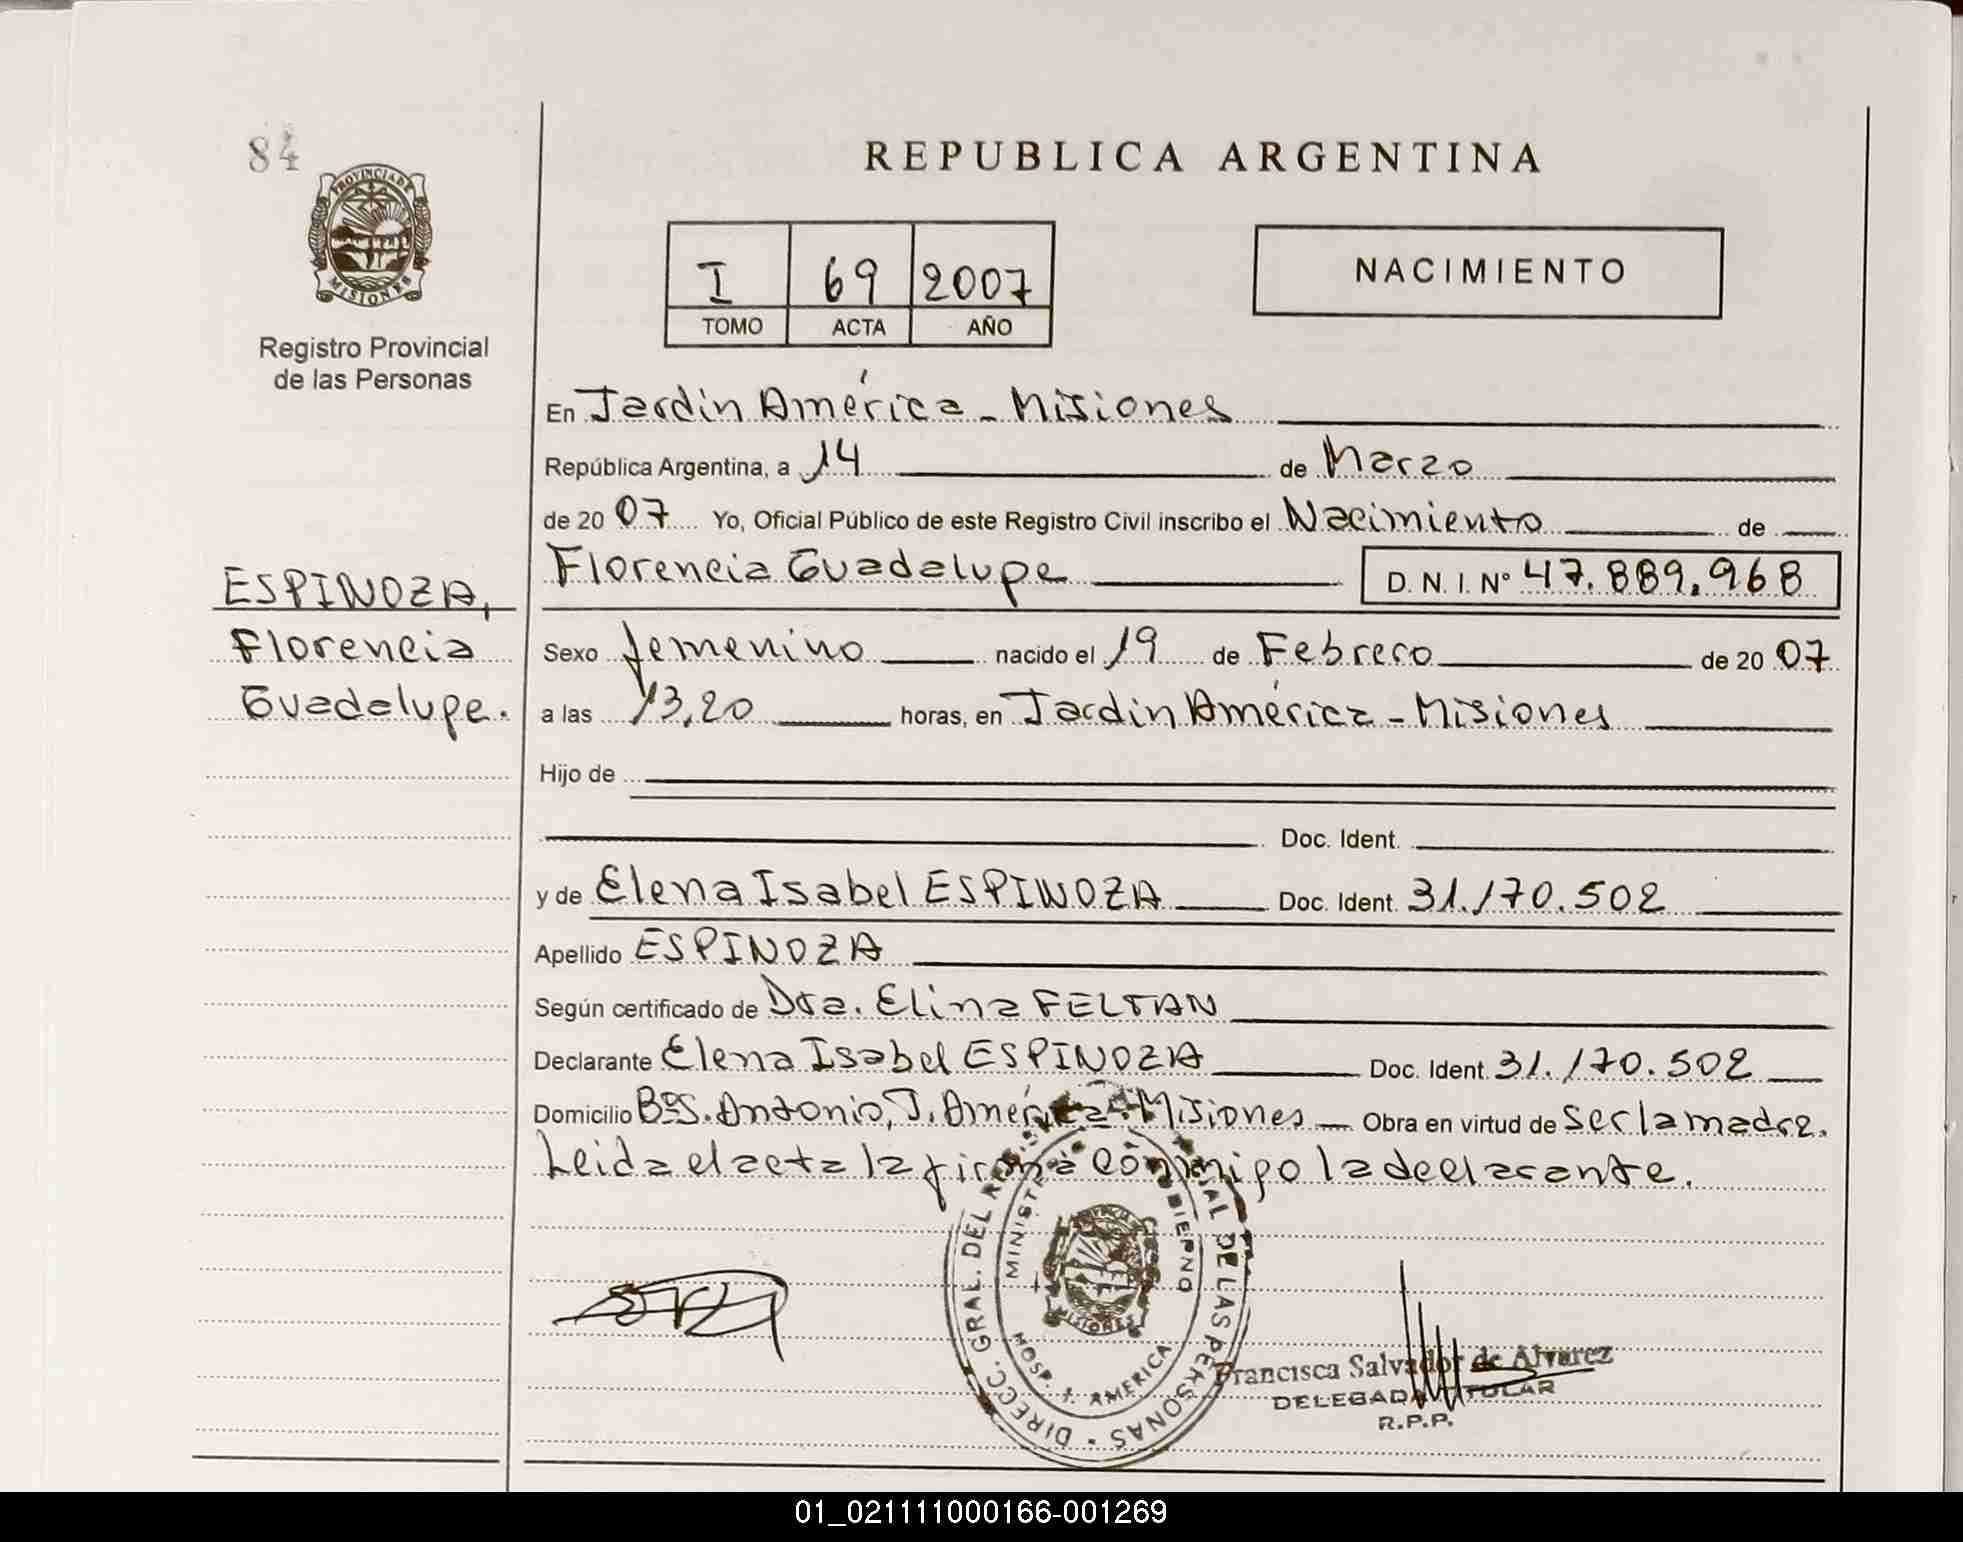 84
REPUBLICA ARGENTINA
PROVINCIA DE
MISIONES
I 69 2007
TOMO ACTA AÑO
NACIMIENTO
Registro Provincial
de las Personas
En Jardin América - Misiones
República Argentina, a 14 de Marzo
de 20 07 Yo, Oficial Público de este Registro Civil inscribo el Nacimiento de
Florencia Guadalupe D. N. I. Nº 47.889.968
ESPINOZA,
Florencia
Guadalupe.
Sexo femenino nacido el 19 de Febrero de 20 07
a las 13,20 horas, en Jardin América - Misiones
Hijo de
Doc. Ident.
y de Elena Isabel ESPINOZA Doc. Ident. 31.170.502
Apellido ESPINOZA
Según certificado de Dra. Elina FELTAN
Declarante Elena Isabel ESPINOZA Doc. Ident. 31.170.502
Domicilio BºS. Antonio, J. América - Misiones Obra en virtud de ser la madre.
Leida el acta la firma conmigo la declarante.
DIRECC. GRAL. DEL DE LAS PERSONAS
HOSP. J. AMERICA
MISIONES
Francisca Salvador de Alvarez
DELEGADA TITULAR
R.P.P.
01_021111000166-001269